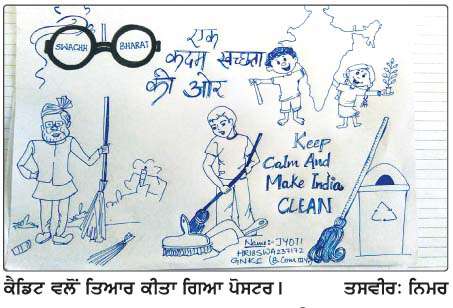 SWACHH BHARAT
एक
कदम स्वच्छता
की ओर
Keep
Calm And
Make India
CLEAN
Name:- JYOTI
HR18SWA237172
GNKC (B.Com
ਕੈਡਿਟ ਵਲੋਂ ਤਿਆਰ ਕੀਤਾ ਗਿਆ ਪੋਸਟਰ। ਤਸਵੀਰਃ ਨਿਮਰ